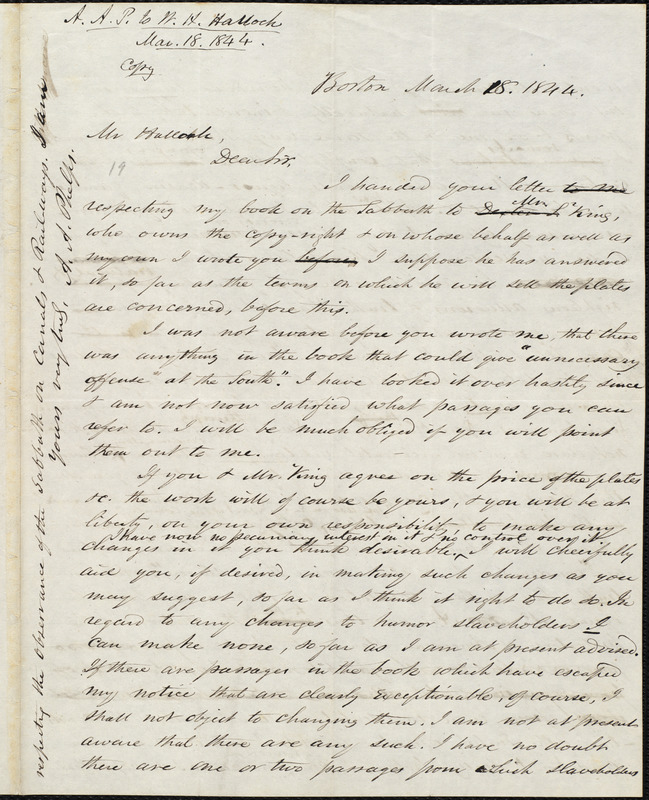 A. A. P. to W. H. Hallock
Mar. 18. 1844.
Copy
Boston March 18. 1844.
Mr Hallock,
19
Dear Sir,
I handed your letter to me
respecting my book on the Sabbath to Mr. King,
who owns the copy-right & on whose behalf as well as
my own I wrote you before, I suppose he has answered
it, so far as the terms on which he will sell the plates
are concerned, before this.
I was not aware before you wrote me, that there
was anything in the book that could give "unnecessary
offense" at the South." I have looked it over hastily since
& am not now satisfied what passages you can
refer to. I will be much obliged if you will point
them out to me.
If you & Mr. King agree on the price of the plates
&c. the work will of course be yours, & you will be at
liberty, on your own responsibility, to make any
I have now no pecuniary interest in it & no control over it.
changes in it you think desirable. I will cheerfully
aid you, if desired, in making such changes as you
may suggest, so far as I think it right to do so. In
regard to any changes to humor slaveholders I
can make none, so far as I am at present advised.
If there are passages in the book which have escaped
my notice that are clearly exceptionable, of course, I
shall not object to changing them. I am not at present
aware that there are any such. I have no doubt
there are one or two passages from which slaveholders
respecting the Observance of the Sabbath on Canals & Railways. I am
Yours very truly, A. A. Phelps.